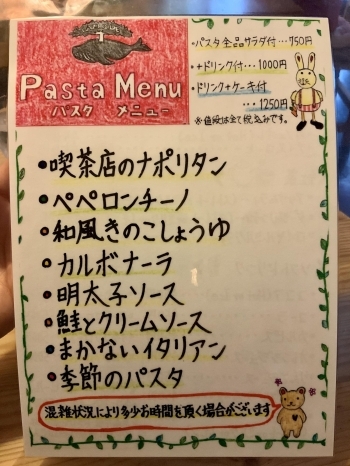 Pasta Menu
パスタ メニュー
・パスタ全品サラダ付…950円
・+ドリンク付…1000円
・ドリンク+ケーキ付
…1250円
※値段は全て税込みです。
・喫茶店のナポリタン
・ペペロンチーノ
・和風きのこしょうゆ
・カルボナーラ
・明太子ソース
・鮭とクリームソース
・まかないイタリアン
・季節のパスタ
混雑状況により多少お時間を頂く場合がございます